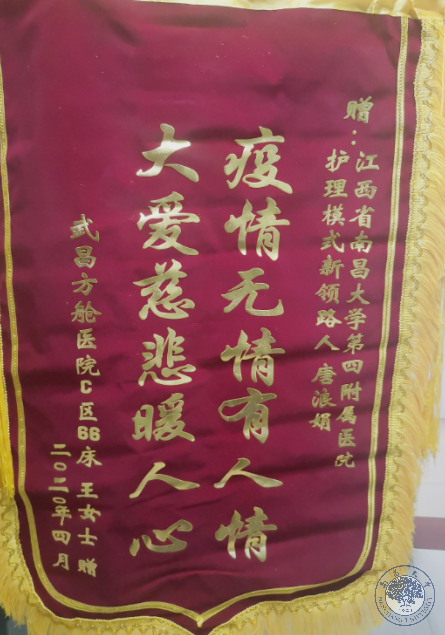 赠：江西省南昌大学第四附属医院
护理模式新领路人 唐浪娟
疫情无情有人情
大爱慈悲暖人心
武昌方舱医院C区66床 王女士 赠
二〇二〇年四月